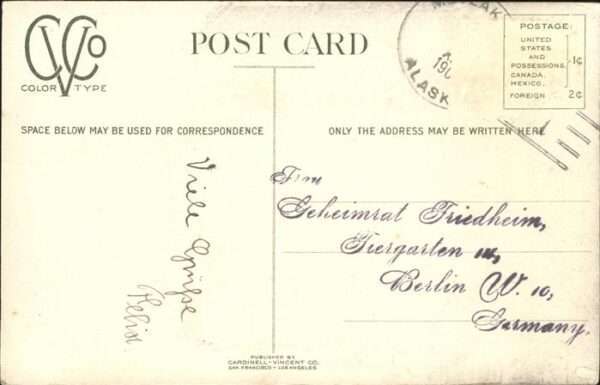 CVCo
COLOR TYPE
POST CARD
ALASK
190
POSTAGE:
UNITED
STATES
AND
POSSESSIONS,
CANADA,
MEXICO,
1¢
FOREIGN 2¢
SPACE BELOW MAY BE USED FOR CORRESPONDENCE
ONLY THE ADDRESS MAY BE WRITTEN HERE
Viele Grüsse
Geheimrat Friedheim,
Tiergarten
Berlin W. 10,
Germany.
PUBLISHED BY
CARDINELL-VINCENT CO.
SAN FRANCISCO - LOS ANGELES